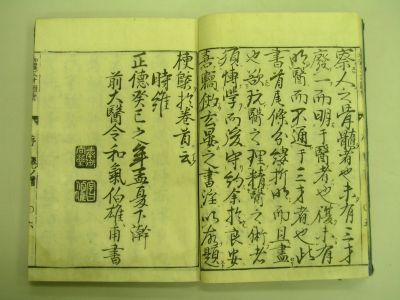 察人之骨髓者也未有三才
廢一而明于醫者也未有
明醫而不通于三才者也此
書首尾條分縷析明而且盡
也欲抗醫之理精醫之術者
須博學而後守約余於良安
玄晏之書以題
梗槩於卷首云
時維
正德癸巳之年孟夏下澣
前大醫令和氣伯雄甫書